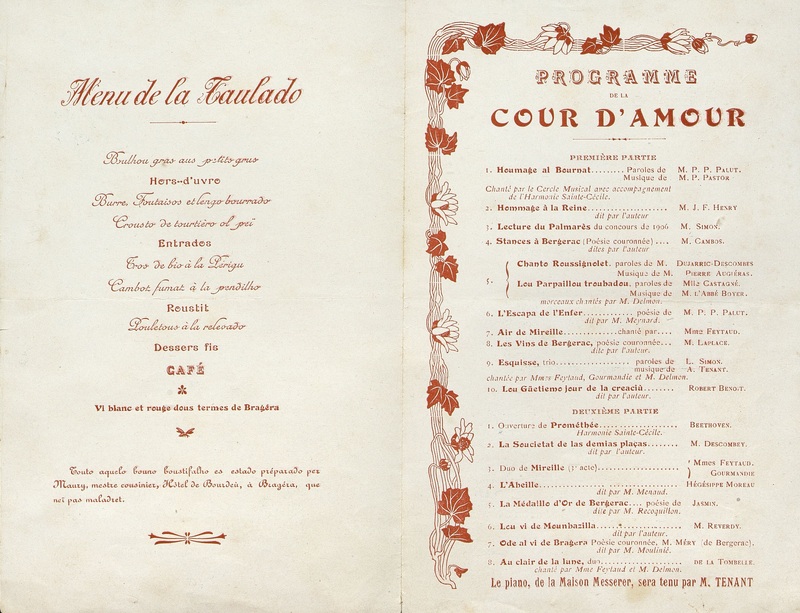 Menu de la Taulado
Boulhou gras aus petits grus
Hors-d'uvro
Burre, Toutaisos et lengo bourrado
Crousto de tourtièro ol peï
Entrados
Tros de bio à la Périgu
Cambot fumat à la pendilho
Roustit
Pouletous à la relevado
Dessers fis
CAFÉ
Vi blanc et rouge dous termes de Bragéra
Touto aquelo bouno boustifalho es estado préparado per
Maury, mestre cousinier, Hôstel de Bourdeù, à Bragéra, que
neï pas maladret.
PROGRAMME
DE LA
COUR D'AMOUR
PREMIÈRE PARTIE
1. Houmage al Bournat......... Paroles de M. P. P. PALUT.
Musique de M. P. PASTOR
Chanté par le Cercle Musical avec accompagnement
de l'Harmonie Sainte-Cécile.
2. Hommage à la Reine...................... M. J. F. HENRY
dit par l'auteur
3. Lecture du Palmarès du concours de 1906 M. SIMON.
4. Stances à Bergerac (Poésie couronnée) .... M. CAMBOS.
dites par l'auteur
5. Chanto Roussignolet, paroles de M. DUJARRIC-DESCOMBES
Musique de M. PIERRE AUGIÉRAS.
Lou Parpaillou troubadou, paroles de Mlle CASTAGNÉ.
Musique de M. L'ABBÉ BOYER.
morceaux chantés par M. Delmon.
6. L'Escapa de l'Enfer............ poésie de M. P. P. PALUT.
dit par M. Meynard.
7. Air de Mireille...............chanté par.... Mme FEYTAUD.
8. Les Vins de Bergerac, poésie couronnée... M. LAPLACE.
dite par l'auteur.
9. Esquisse, trio.................... paroles de L. SIMON.
musique de A. TENANT.
chantée par Mmes Feytaud, Gourmandie et M. Delmon.
10. Lou Gûetiemo jour de la creaciù........ ROBERT BENOIT.
dit par l'auteur.
DEUXIÈME PARTIE
1. Ouverture de Prométhée.................... BEETHOVEN.
Harmonie Sainte-Cécile.
2. La Soucietat de las demias plaças........ M. DESCOMBEY.
dit par l'auteur.
3. Duo de Mireille (1er acte)..................... Mmes FEYTAUD.
GOURMANDIE
4. L'Abeille................................... HÉGÉSIPPE MOREAU
dit par M. Menaud.
5. La Médaillo d'Or de Bergerac.... poésie de JASMIN.
dite par M. Recoquillon.
6. Lou vi de Mounbazilla..................... M. REVERDY.
dit par l'auteur.
7. Ode al vi de Bragera Poésie couronnée, M. MÉRY (de Bergerac).
dit par M. Moulinié.
8. Au clair de la lune, duo.................... DE LA TOMBELLE.
chanté par Mme Feytaud et M. Delmon.
Le piano, de la Maison Messerer, sera tenu par M. TENANT